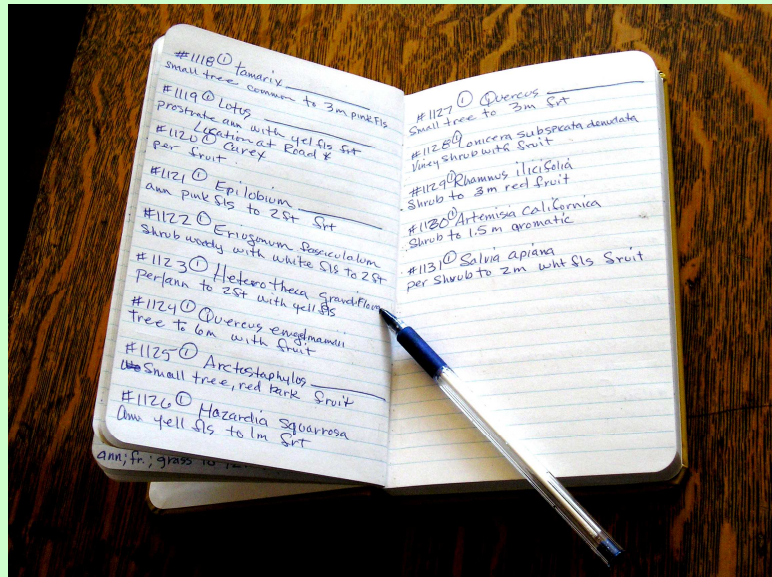 #1118 ① Tamarix
small tree common to 3m pink fls
#1119 ① Lotus
prostrate ann with yel fls frt
Location at Road &
#1120 ① Carex
per fruit
#1121 ① Epilobium
ann pink fls to 2ft frt
#1122 ① Eriogonum fasciculatum
shrub woody with white fls to 2ft
#1123 ① Heterotheca grandiflora
per/ann to 2ft with yell fls
#1124 ① Quercus engelmannii
tree to 6m with fruit
#1125 ① Arctostaphylos
Small tree, red bark fruit
#1126 ① Hazardia squarrosa
ann yell fls to 1m frt
ann; fr.; grass to
#1127 ① Quercus
Small tree to 3m frt
#1128 ① Lonicera subspicata denudata
Viney shrub with fruit
#1129 ① Rhamnus ilicifolia
Shrub to 3m red fruit
#1130 ① Artemisia californica
Shrub to 1.5 m aromatic
#1131 ① Salvia apiana
per Shrub to 2m wht fls fruit